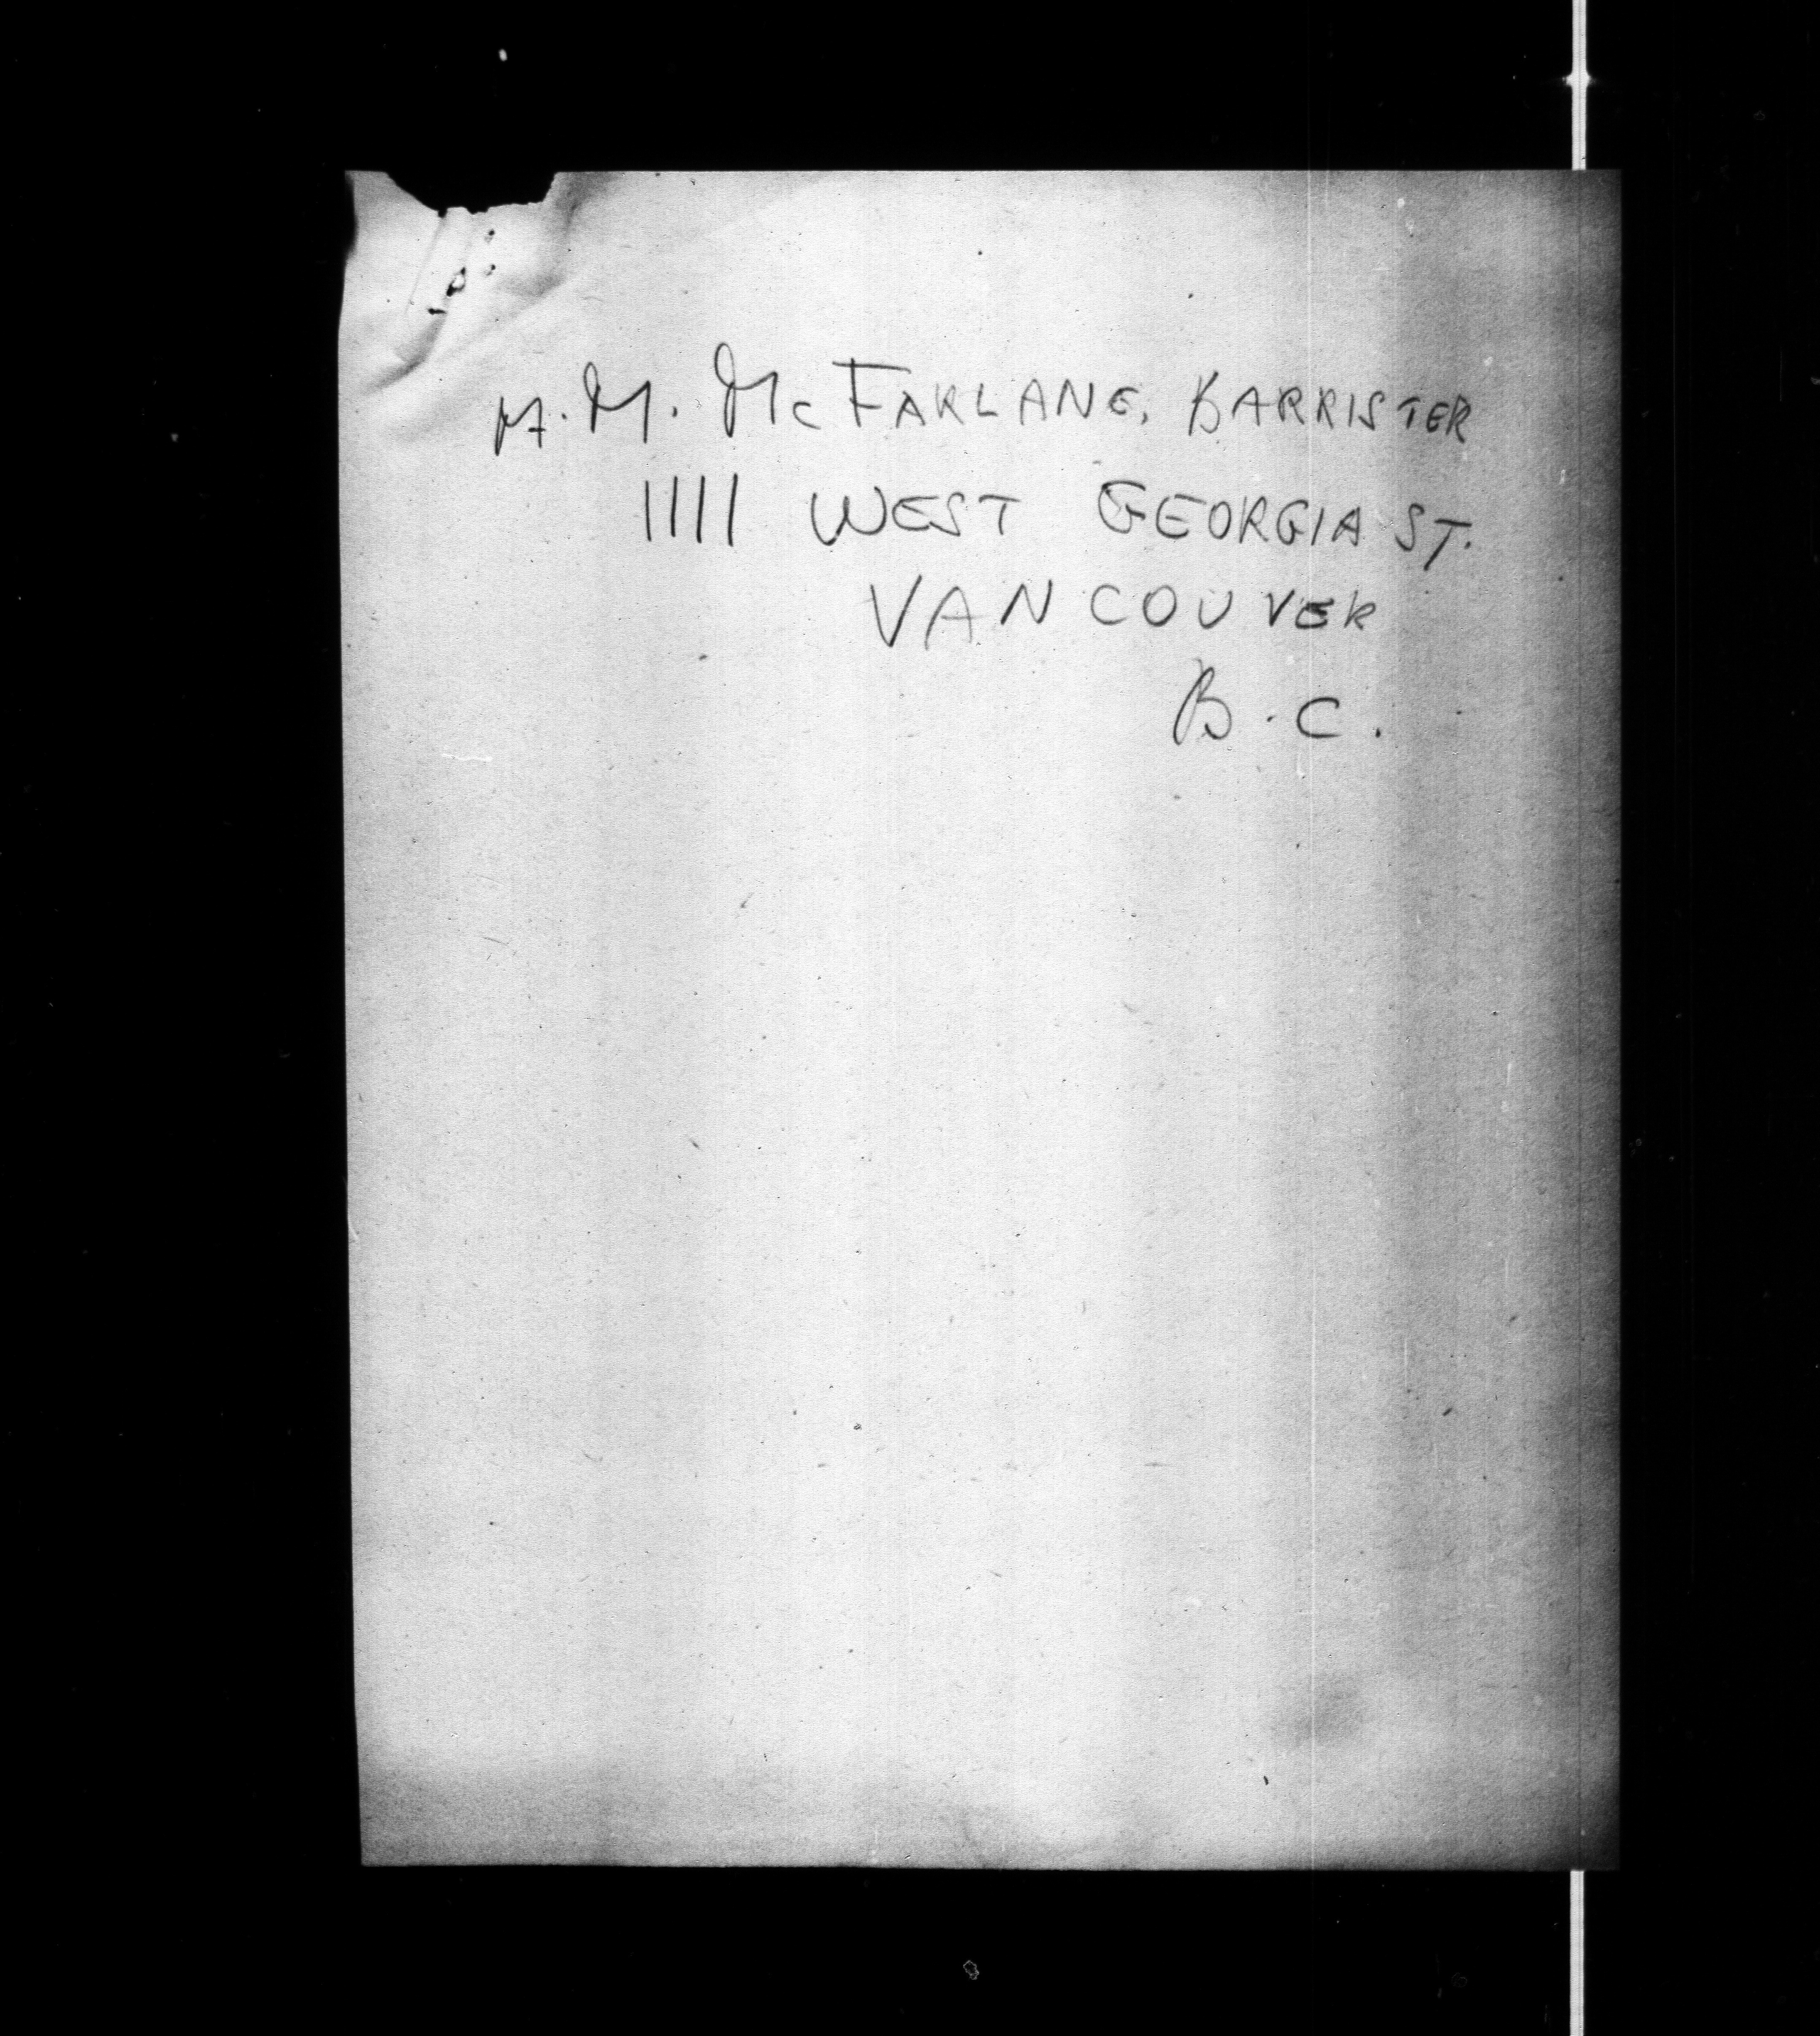 M. M. McFARLANE, BARRISTER
1111 WEST GEORGIA ST.
VANCOUVER
B.C.